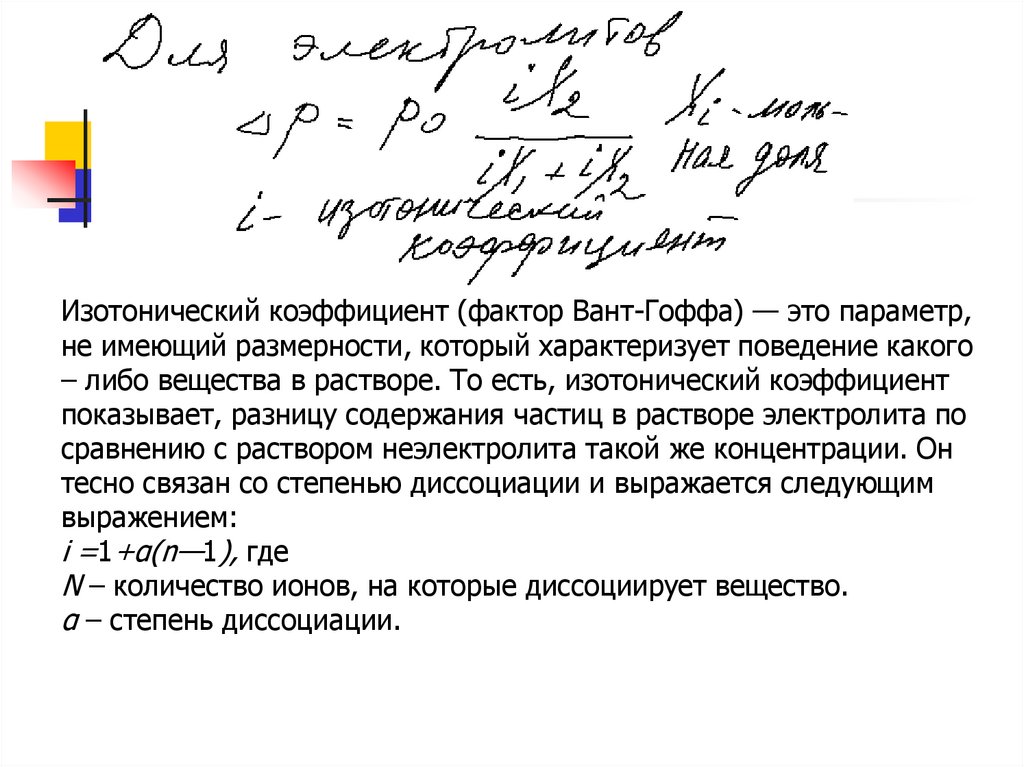 Для электролитов
ΔP = P0 iX2 / iX1 + iX2 Xi - моль-
ная доля
i - изотонический
коэффициент
Изотонический коэффициент (фактор Вант-Гоффа) — это параметр,
не имеющий размерности, который характеризует поведение какого
– либо вещества в растворе. То есть, изотонический коэффициент
показывает, разницу содержания частиц в растворе электролита по
сравнению с раствором неэлектролита такой же концентрации. Он
тесно связан со степенью диссоциации и выражается следующим
выражением:
i =1+α(n—1), где
N – количество ионов, на которые диссоциирует вещество.
α – степень диссоциации.